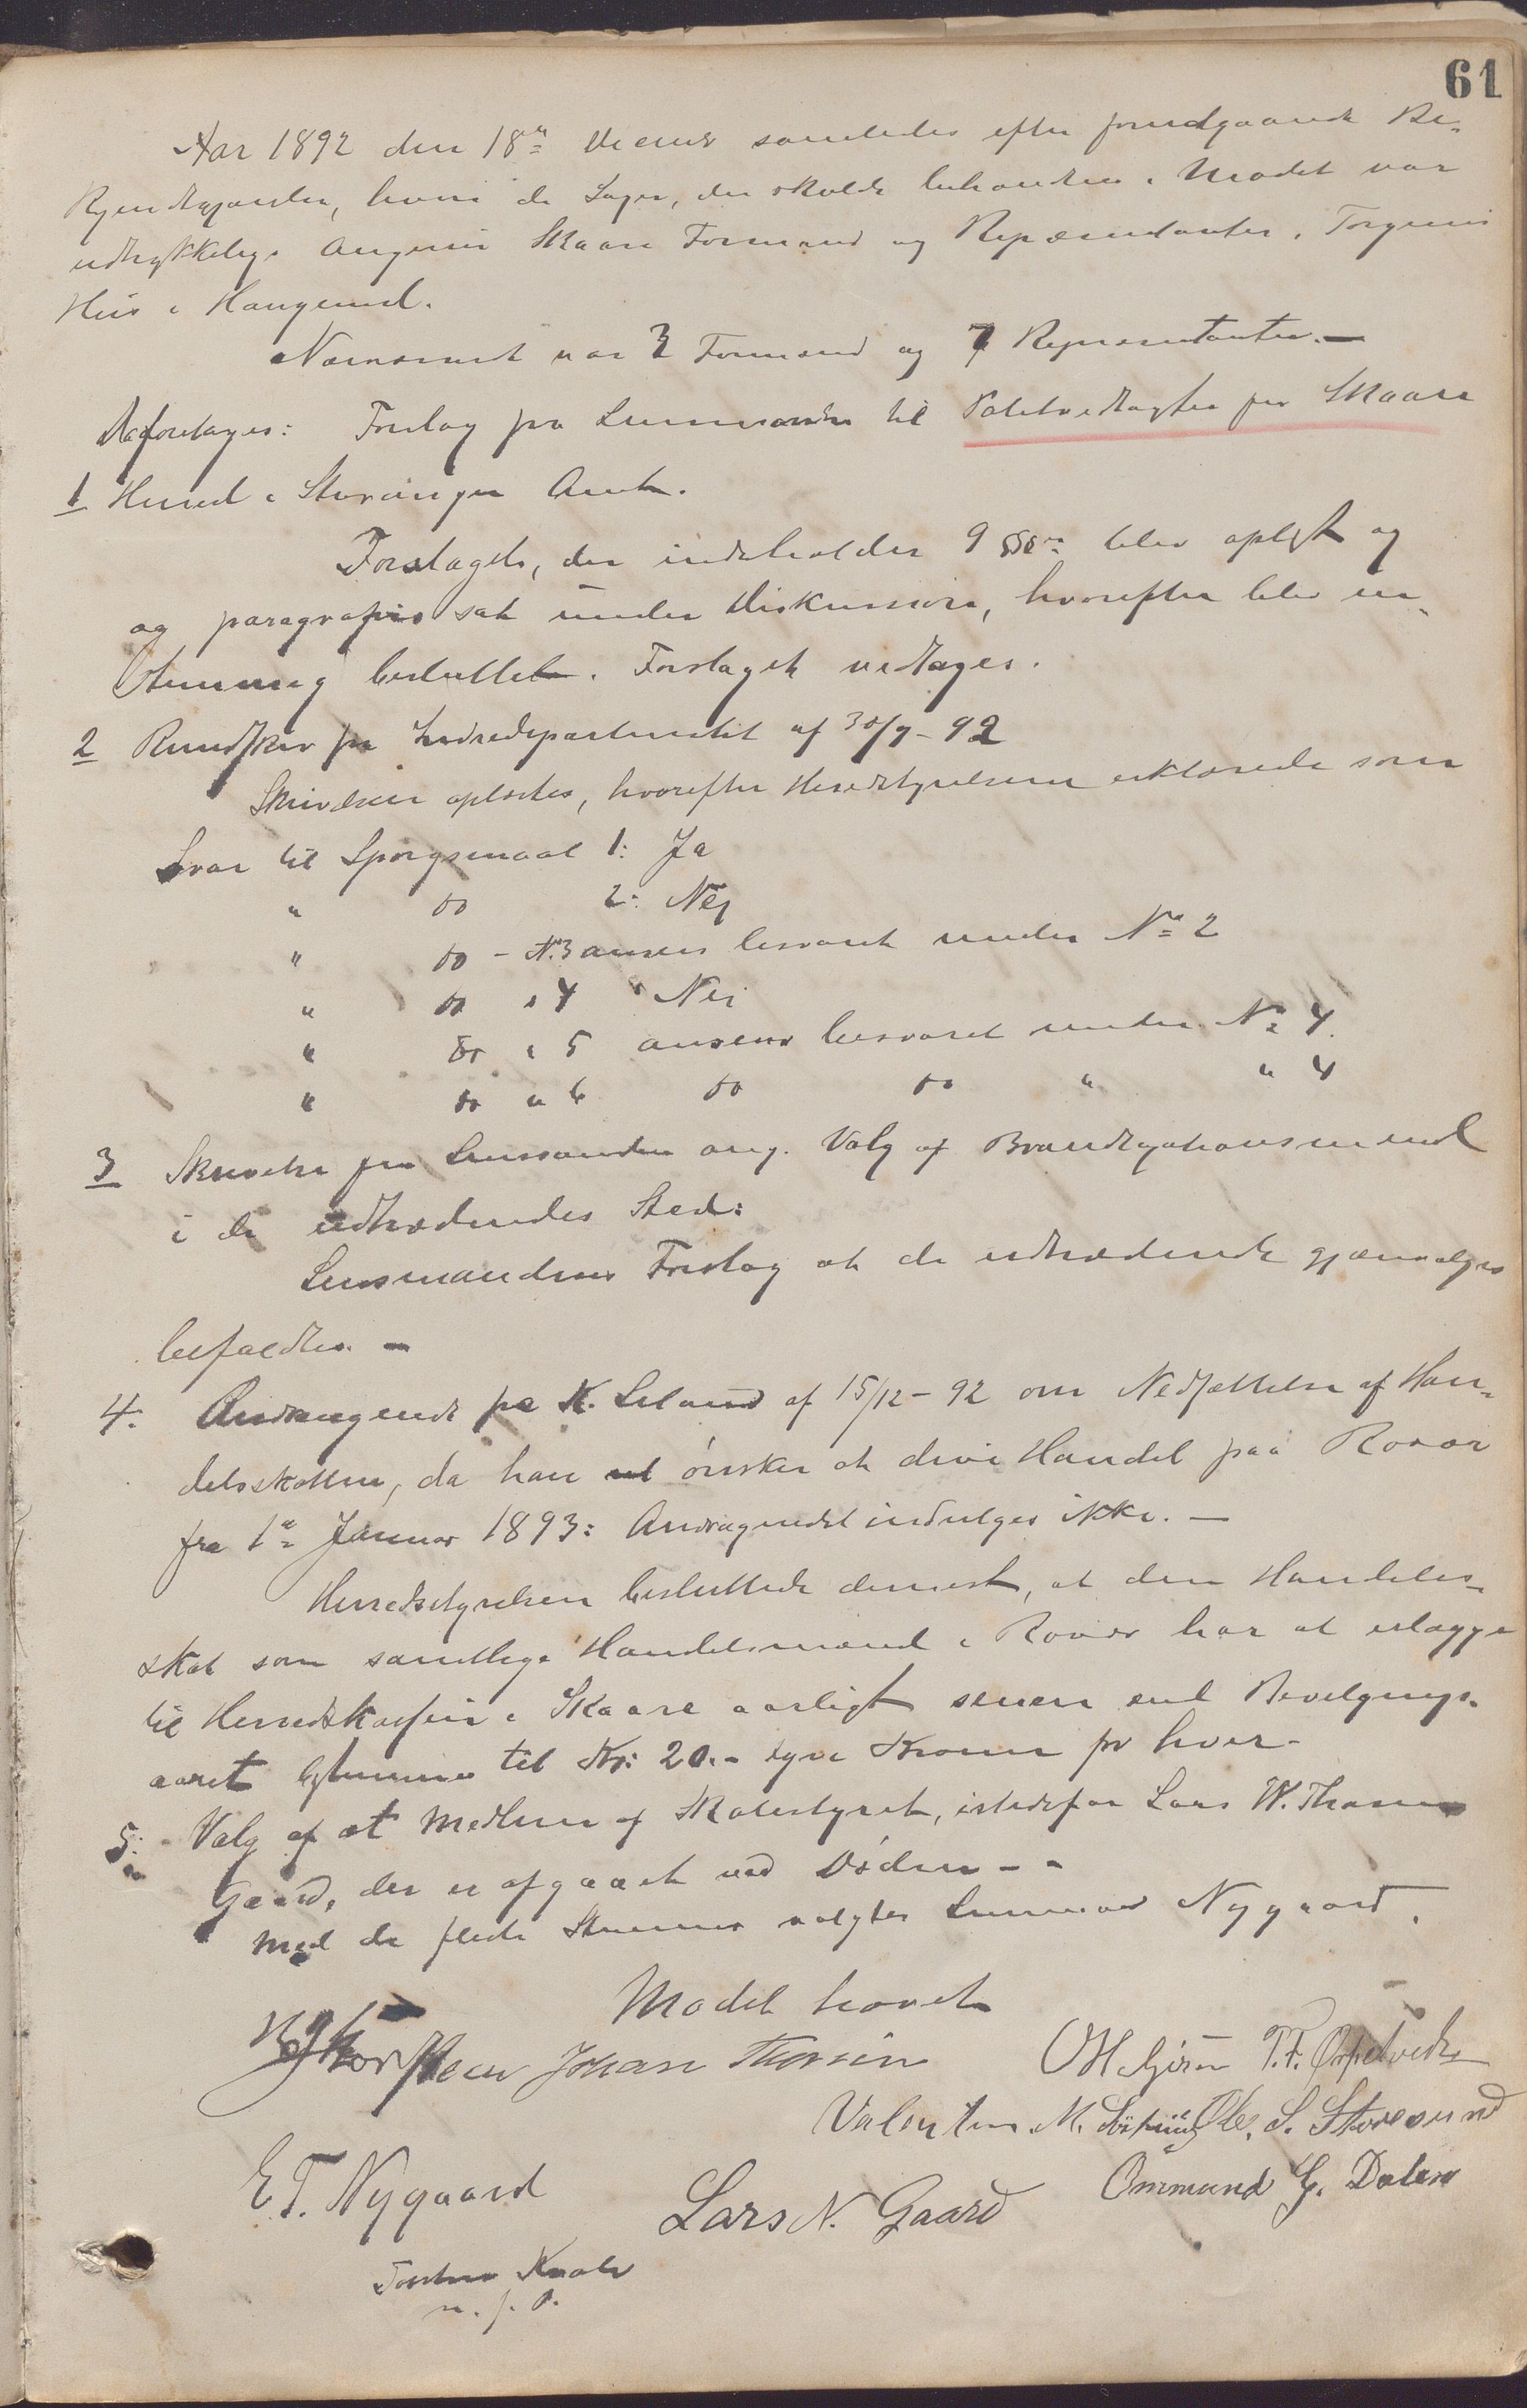 61
Aar 1892 den 18de Decembr samledes efter forudgaaende Be-
kjendtgjørelse, hvori de Sager, der skulde behandles i Mødet var
udtrykkelig angivne Skaare Formænd og Repræsentanter i Torgersens
Hus i Haugesund.
Nærværende var 3 Formænd og 7 Repræsentanter. —
Da foretages: Forslag fra Lensmanden til Politivedtægter for Skaare
1 Herred i Stavanger Amt.
Forslaget, der indeholder 9 §§er blev oplæst og
og paragrafvis sat under Diskussion, hvorefter blev en-
stemmig besluttet. Forslaget vedtages.
2 Rundskriv fra Indredepartementet af 30/7-92
Skrivelsen oplæstes, hvorefter Heredstyrelsen erklærede som
Svar til Spørgsmaal 1: Ja
" do 2: Nej
" do - N.3 ansees besvaret under No 2
" do " 4 " Nei
" do " 5 ansees besvaret under No 4.
" do " 6 do do " " 4
3 Skrivelse fra Lensmanden ang. Valg af Brandtaxationsmænd
i de udtrædendes Sted:
Lensmandens Forslag at de udtrædende gjenvælges
bifaldtes. —
4. Andragende fra K. Leland af 15/12-92 om Nedsættelse af Han-
delsskatten, da han ønsker at drive Handel paa Røvær
fra 1ste Januar 1893: Andragendet indvilges ikke. —
Herredsstyrelsen besluttede dernæst, at den Handels-
skat som samtlige Handelsmænd i Røvær har at erlægge
til Herredskassen i Skaare aarligt senere end Bevilgnings-
aaret bestemmes til Kr: 20.- tyve Kroner pr hver.
5: Valg af et Medlem af Skatestyret, istedetfor Lars W. Thorsen
Gaard, der er afgaaet ved Døden - -
Med de fleste Stemmer valgtes Lensmand Nygaard.
Mødet hævet
Johan Thorsen
T. T.
Valentin M. Ole. S. Storesund
E T. Nygaard
Lars N. Gaard
Ommund G. Dalen